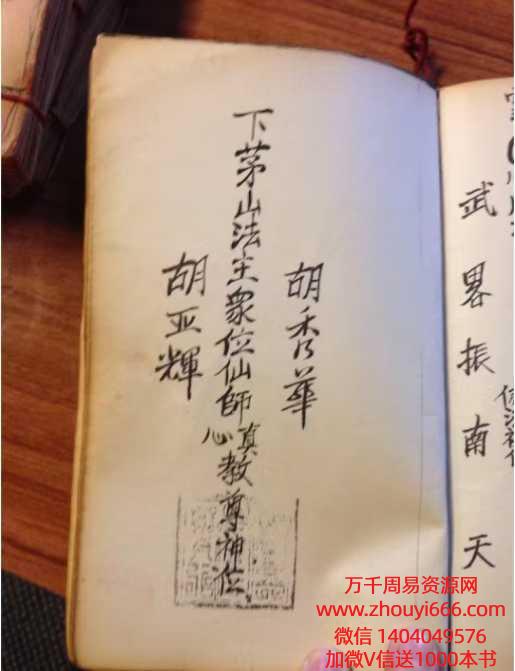 武畧振南天
胡秀華
下茅山法主眾位仙師真心教尊神位
胡亚輝
万千周易资源网
www.zhouyi666.com
微信 1404049576
加微V信送1000本书